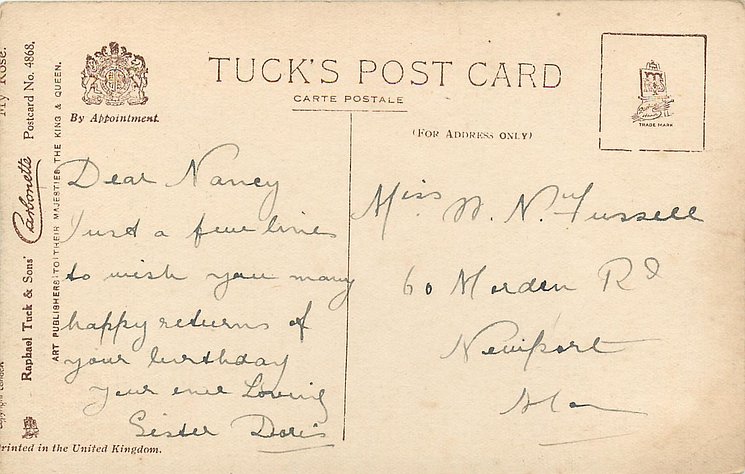 My Rose.
Raphael Tuck & Sons' Carbonette Postcard No. 4868.
ART PUBLISHERS TO THEIR MAJESTIES THE KING & QUEEN.
By Appointment.
TUCK'S POST CARD
CARTE POSTALE
(FOR ADDRESS ONLY)
TRADE MARK
Dear Nancy
Just a few lines
to wish you many
happy returns of
your birthday
Your ever Loving
Sister Doris
Miss N. Fussell
60 Morden Rd
Newport
Mon
Printed in the United Kingdom.